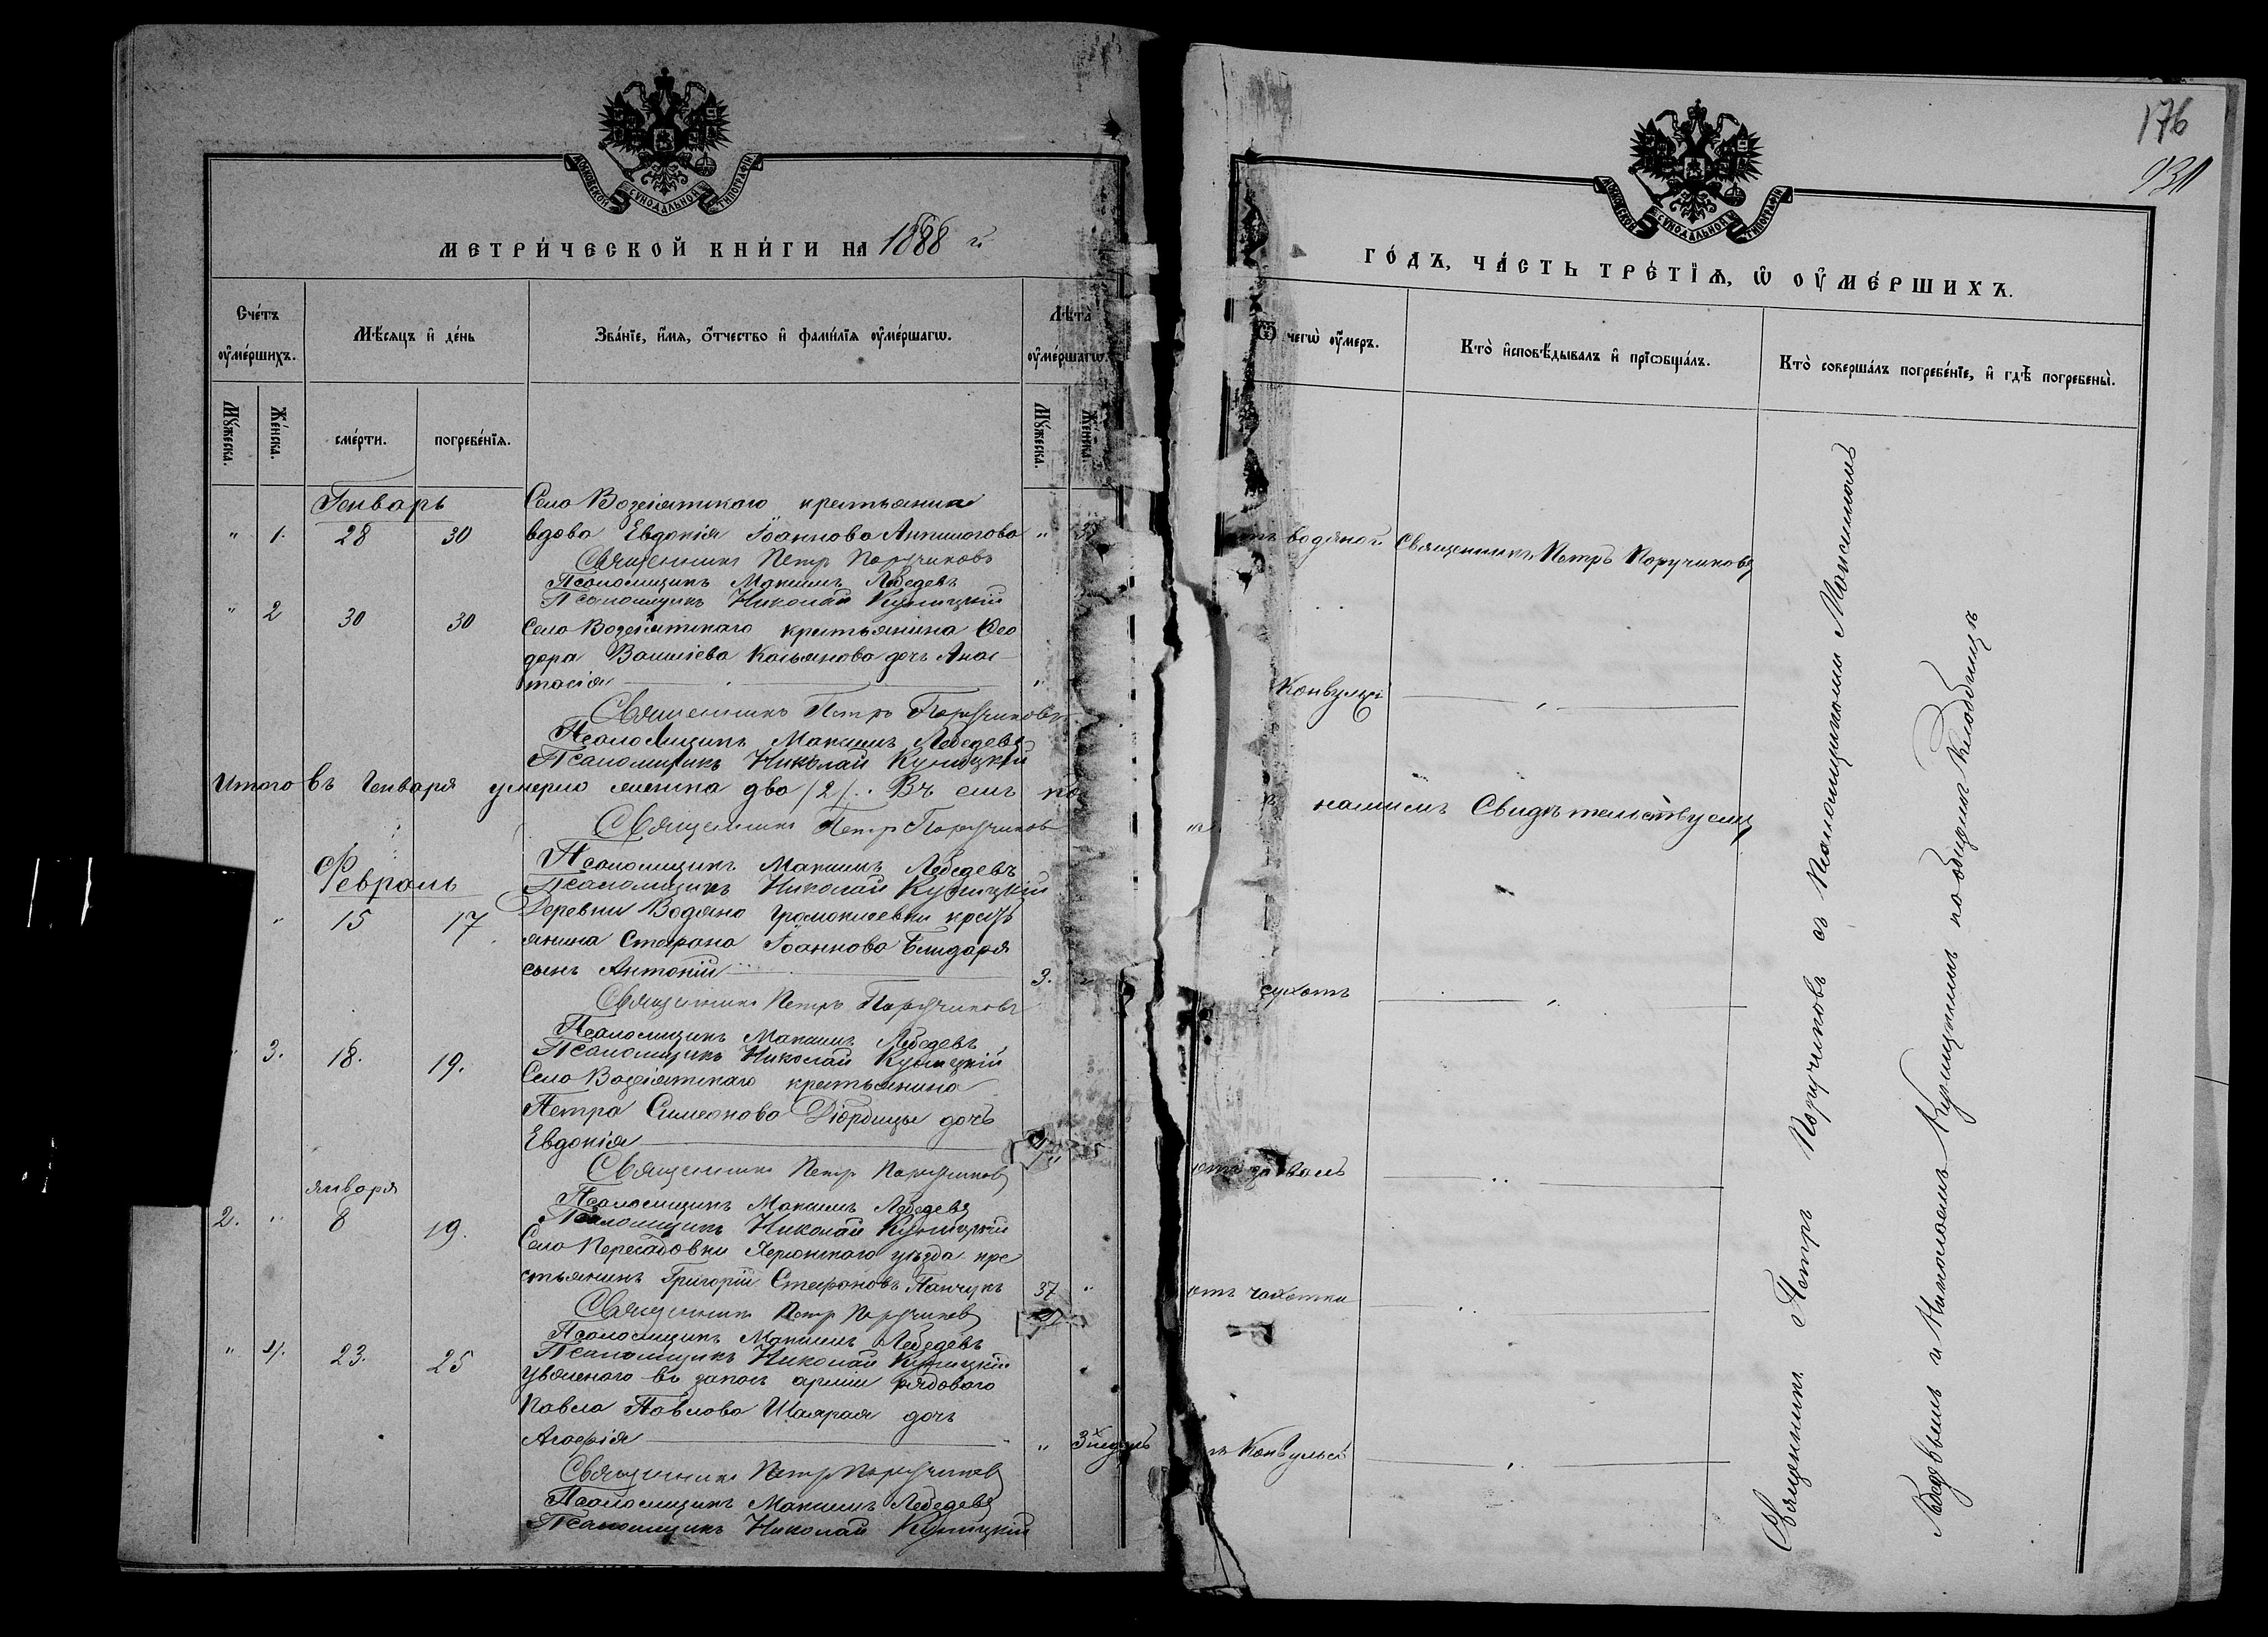 МОСКОВСКОЙ СѴНОДАЛЬНОЙ ТИПОГРАФІИ
МЕТРИ́ЧЕСКОЙ КНИ́ГИ НА 1888 й
Сче́тъ ѹ҆ме́ршихъ.
Мѣ́сяцъ и҆ де́нь
Зва́нїе, и҆́мя, ѻ҆́тчество и҆ фами́лїя ѹ҆ме́ршагѡ.
Лѣ́та ѹ҆ме́ршагѡ.
Мꙋ́жеска.
Же́нска.
сме́рти.
погребе́нїя.
Мꙋ́жеска.
Же́нска.
Генварь
Село Вознесятскаго крестьянка
" 1. 28 30 вдова Евдокія Іоаннова "
Священникъ Петр Поручиковъ
Псаломщикъ Максимъ Лебедевъ
Псаломщикъ Николай Куницкій
" 2 30 30 Село крестьянина Ѳео
дора Василіева Касьянова дочь Анас-
тасія "
Священникъ Петръ Поручиковъ
Псаломщикъ Максимъ Лебедевъ
Псаломщикъ Николай Куницкій
Итого въ Генваря умерло женска два /2/. Въ семъ
Священникъ Петр Поручиковъ
Псаломщикъ Максимъ Лебедевъ
Февраль
Псаломщикъ Николай Куницкій
" 15 17 Деревни Водяно кресть
янина Стефана Іоаннова Блидаря
сынъ Антоній 3. "
Священникъ Петръ Поручиковъ
Псаломщикъ Максимъ Лебедевъ
Псаломщикъ Николай Куницкій
3. 18. 19. Село крестьянина
Петра Симеонова дочь
Евдокія
Священникъ Петр Поручиковъ
января
Псаломщикъ Максимъ Лебедевъ
Псаломщикъ Николай Куницкій
2. " 8 19. Село Пересадовки Херсонскаго уѣзда кре
стьянинъ Григорій Стефановъ Панчукъ 37 "
Священникъ Петр Поручиковъ
Псаломщикъ Максимъ Лебедевъ
Псаломщикъ Николай Куницкій
" 4. 23. 25 въ запасъ арміи рядового
Павла Павлова дочь
Агафія "
Священникъ Петр Поручиковъ
Псаломщикъ Максимъ Лебедевъ
Псаломщикъ Николай Куницкій
176
931
МОСКОВСКОЙ СѴНОДАЛЬНОЙ ТИПОГРАФІИ
ГО́ДЪ, ЧА́СТЬ ТРЕ́ТЇѦ, Ѡ҆ ОУ҆МЕ́РШИХЪ.
Ѿ чегѡ̀ ѹ҆́меръ.
Кто̀ и҆сповѣ́дывалъ и҆ прїѡбща́лъ.
Кто̀ соверша́лъ погребе́нїе, и҆ гдѣ̀ погребены̀.
водяной Священникъ Петръ Поручиковъ
Конвульсій "
нашимъ Свидѣтельствуемъ
сухотъ "
"
отъ чахотки "
Конвульсій "
Священникъ Петръ Поручиковъ съ Псаломщиками Максимомъ
Лебедевымъ и Николаемъ Куницкимъ на общемъ Кладбищѣ